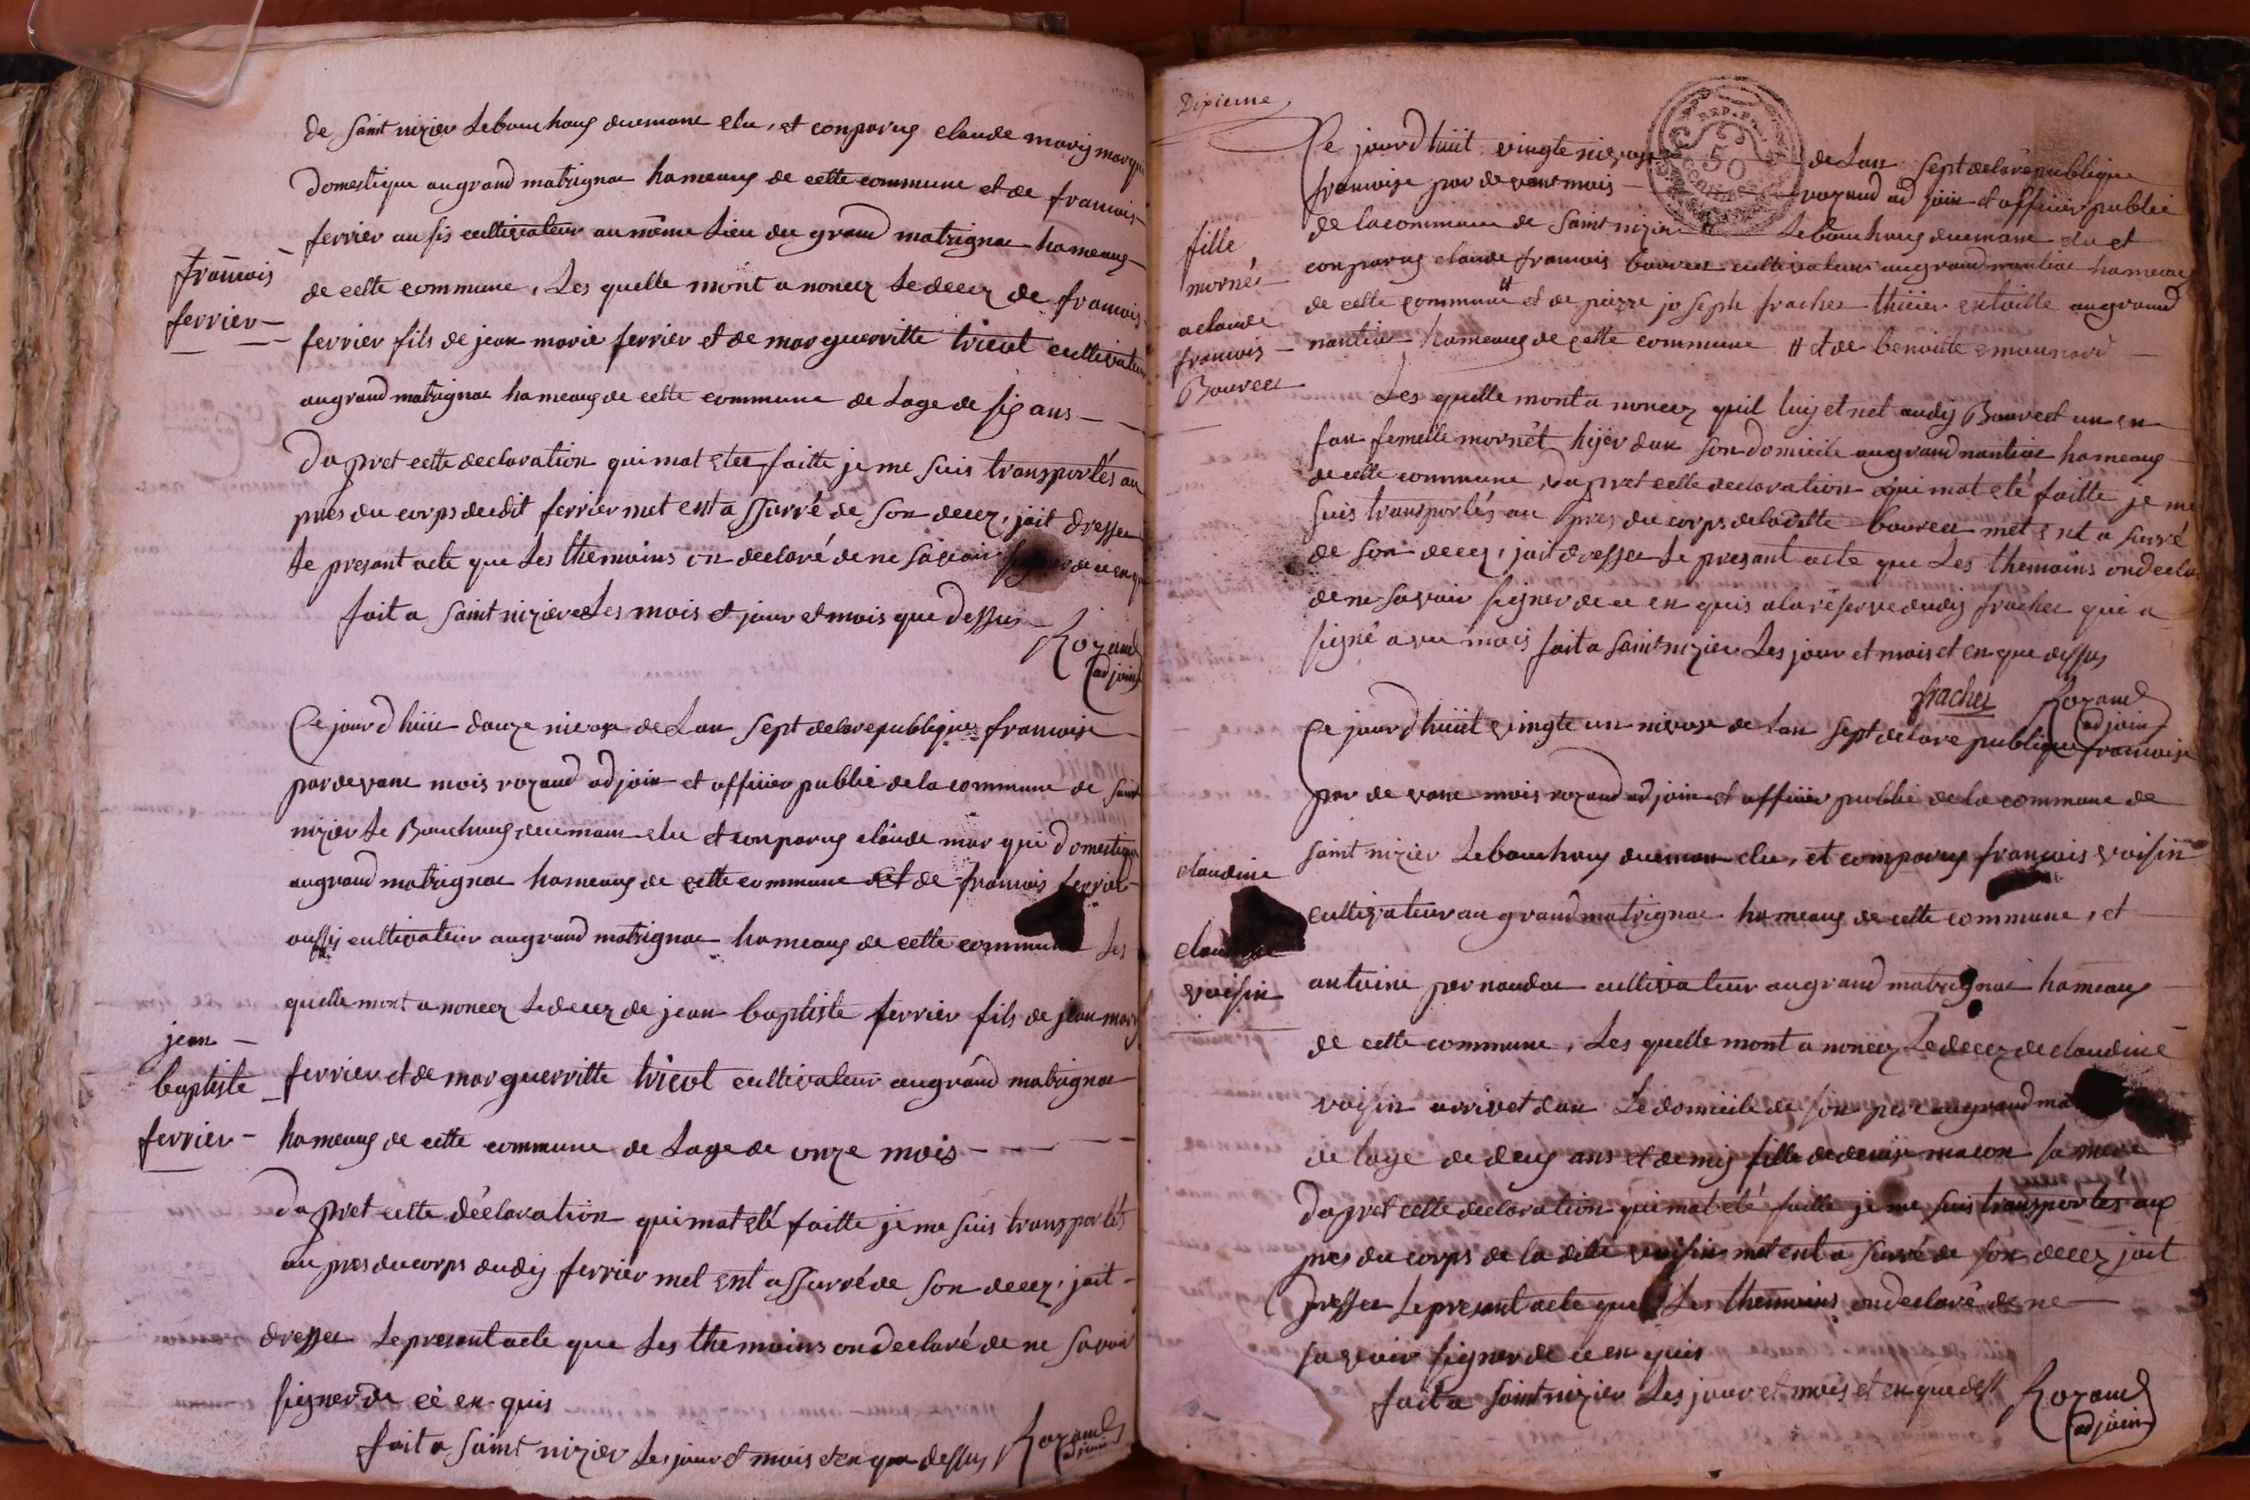 de Saint nizier Lebouchoux duemane elu, et conparus claude
domestique augrand matrignac hameaux de cette commune et de francois
ferrier au sis cultivateur au même Lieu du grand matrignac hameaux
francois
ferrier
de cette commune, Les quelle mont a noncez Ledecez de francois
ferrier fils de jean marie ferrier et de marguerritte tricot cultivateur
augrand matrignac hameaux de cette commune de Lage de six ans
Dapret cette declaration qui mat etee faitte je me suis transportés au
pres du corps dudit ferrier met ent a ssurré de son decez, jait dressee
Le presant acte que Les themoins on declaré de ne savoir signer de ce en
fait a saint nizier Les mois et jour et mois que dessus
Rozand
adjoin
Ce jourd huit douze nivose de Lan sept delarepublique francoise
pardevant mois rozand adjoin et officier public de la commune de saint
nizier Le Bouchoux, duemane elu et conparus claude marqui domestique
augrand matrignac hameaux de cette commune et de francois ferrier
aussis cultivateur augrand matrignac hameaux de cette commune Les
quelle mont a noncez Ledecez de jean baptiste ferrier fils de jean marie
jean
baptiste
ferrier
ferrier et de marguerritte tricot cultivateur augrand matrignac
hameaux de cette commune de Lage de onze mois
Dapret cette déclaration qui mat eté faitte je me suis transportés
au pres du corps dudis ferrier met ent assurré de son decez, jait
dressee Lepresant acte que Les themoins on declaré de ne savoir
signer de cé en quis
fait a saint nizier Les jour et mois et en que dessus Rozand
adjoin
Dixieme
Ce jourd huit vingte nivose de Lan sept delarepublique
REP. F.
50
CENT
francoise par devant mois rozand ad join et officier public
de la commune de saint nizier Lebouchoux duemane elu et
fille
mornée
a claude
francois
Bouvee
conparus claude francois bouvee cultivateur augrand nantiac hameaux
de cette commune # et de pierre joseph frachee augrand
nantiac hameaux de cette commune # et de benoitte
Les quelle mont a noncez quil luis et net audis Bouveet un en
fan femelle mornét hijer dan son domicile augrand nantiac hameaux
de cette commune, dapret cette declaration qui mat eté faitte je me
suis transportés au pres du corps deladitte bouvee met ent a surré
de son decez, jait dressee Le presant acte que Les themoins on decla
de ne savoir signer de ce en quis a la réserve dudis frachee qui a
signé avec mois fait a saint nizier Les jour et mois et en que dessus
frachee Rozand
adjoin
Ce jourd huit vingte un nivose de Lan sept delare publique francoise
par de vant mois rozand adjoin et officier public de la commune de
saint nizier Lebouchoux duemane elu, et comparus francois voisin
claudine
voisin
cultivateur au grand matrignac hameaux de cette commune, et
antoine pernaudac cultivateur augrand matrignac hameaux
de cette commune, Les quelle mont a noncez Ledecez de claudine
voisin arrivet dan Le domicile de son pere augrand
de lage de deux ans et demis fille de denise macon sa mere
Dapret cette declaration qui mat eté faitte je me suis transportés aux
pres du corps de la ditte voisin met ent a surré de son decez jait
dressee Lepresant acte que Les themoins on declaré de ne
savoir signer de ce en quis
fait a saint nizier Les jour et mois et en que dess Rozand
adjoin